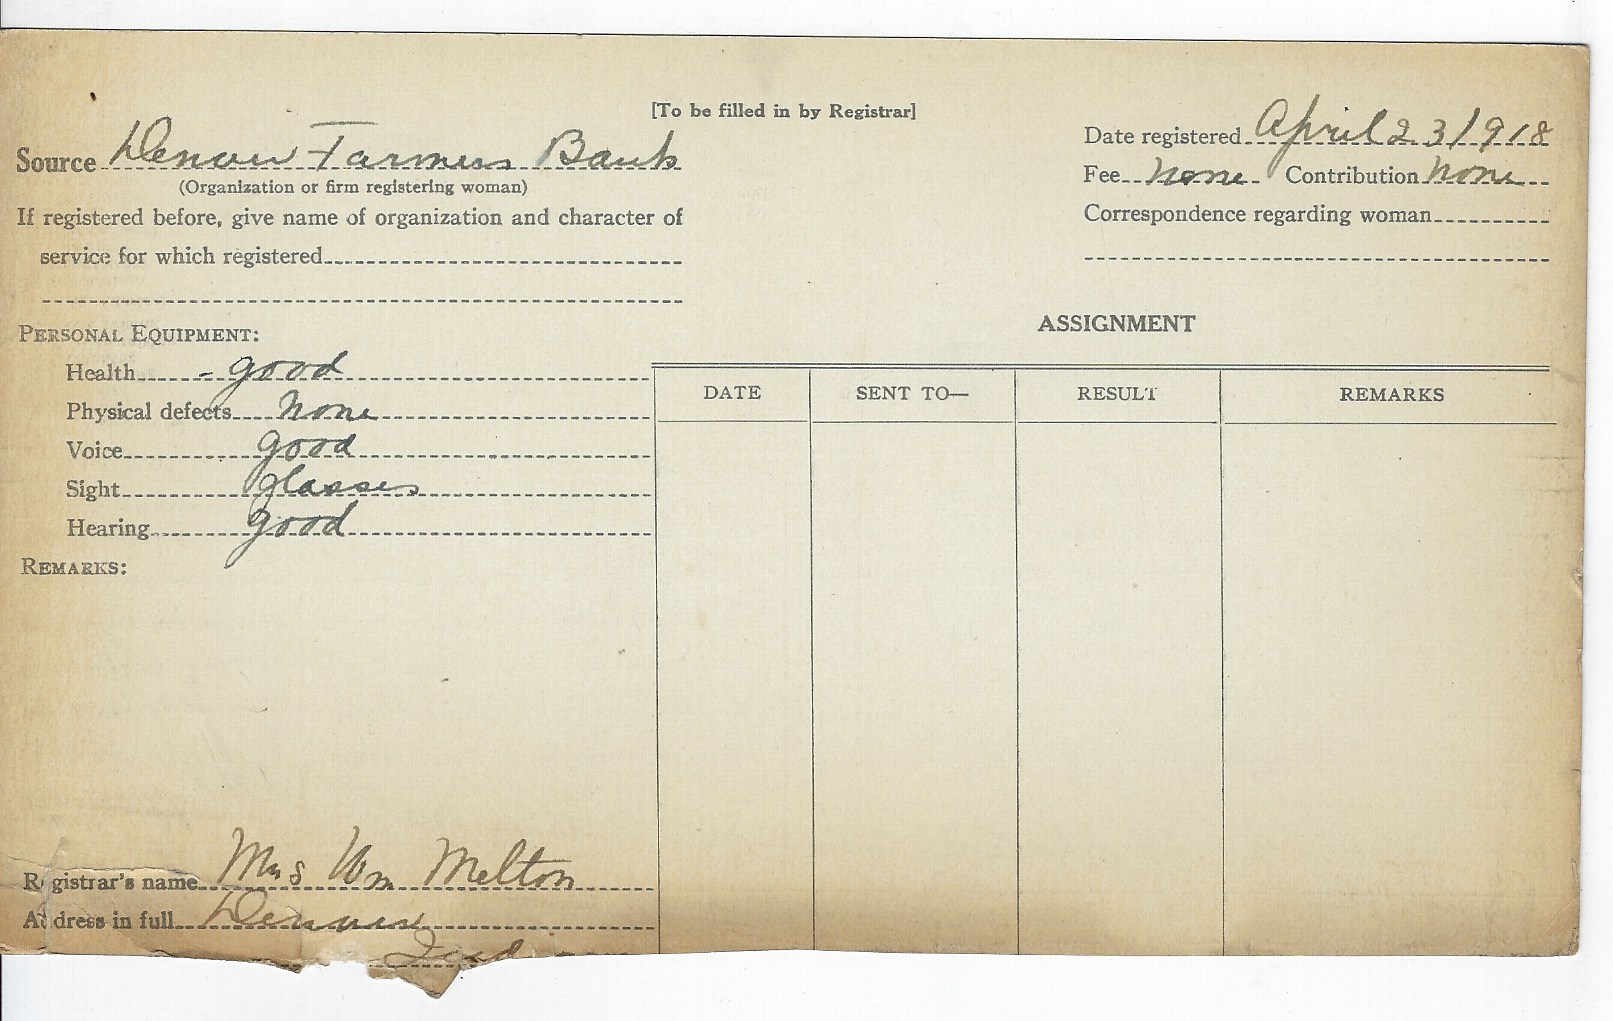 [To be filled in by Registrar]
Source Denver Farmers Bank
(Organization or firm registering woman)
If registered before, give name of organization and character of
service for which registered
Date registered April 23 1918
Fee None Contribution None
Correspondence regarding woman
PERSONAL EQUIPMENT:
Health - good
Physical defects None
Voice good
Sight glasses
Hearing good
REMARKS:
Registrar's name Mrs Wm Melton
Address in full Denver
ASSIGNMENT
DATE SENT TO— RESULT REMARKS